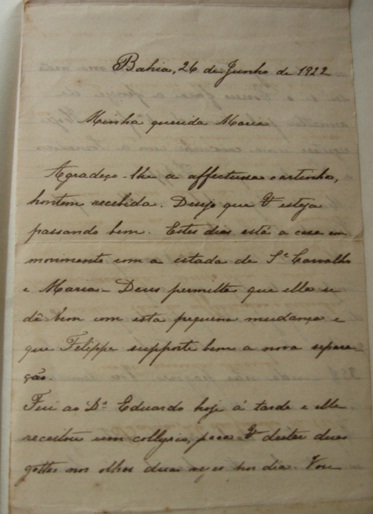 Bahia, 26 de Junho de 1922
Minha querida Maria
Agradeço-lhe a affectuosa cartinha,
hontem recebida. Desejo que V esteja
passando bem. Estes dias está a casa em
movimento com a estada de Sr Carvalho
e Maria - Deus permitta que ella se
dê bem com esta pequena mudança e
que Filippe supporte bem a nova separa-
ção.
Fui ao Dr Eduardo hoje á tarde e elle
receitou um collyrio, para V deitar duas
gottas nos olhos duas vezes por dia. Vou